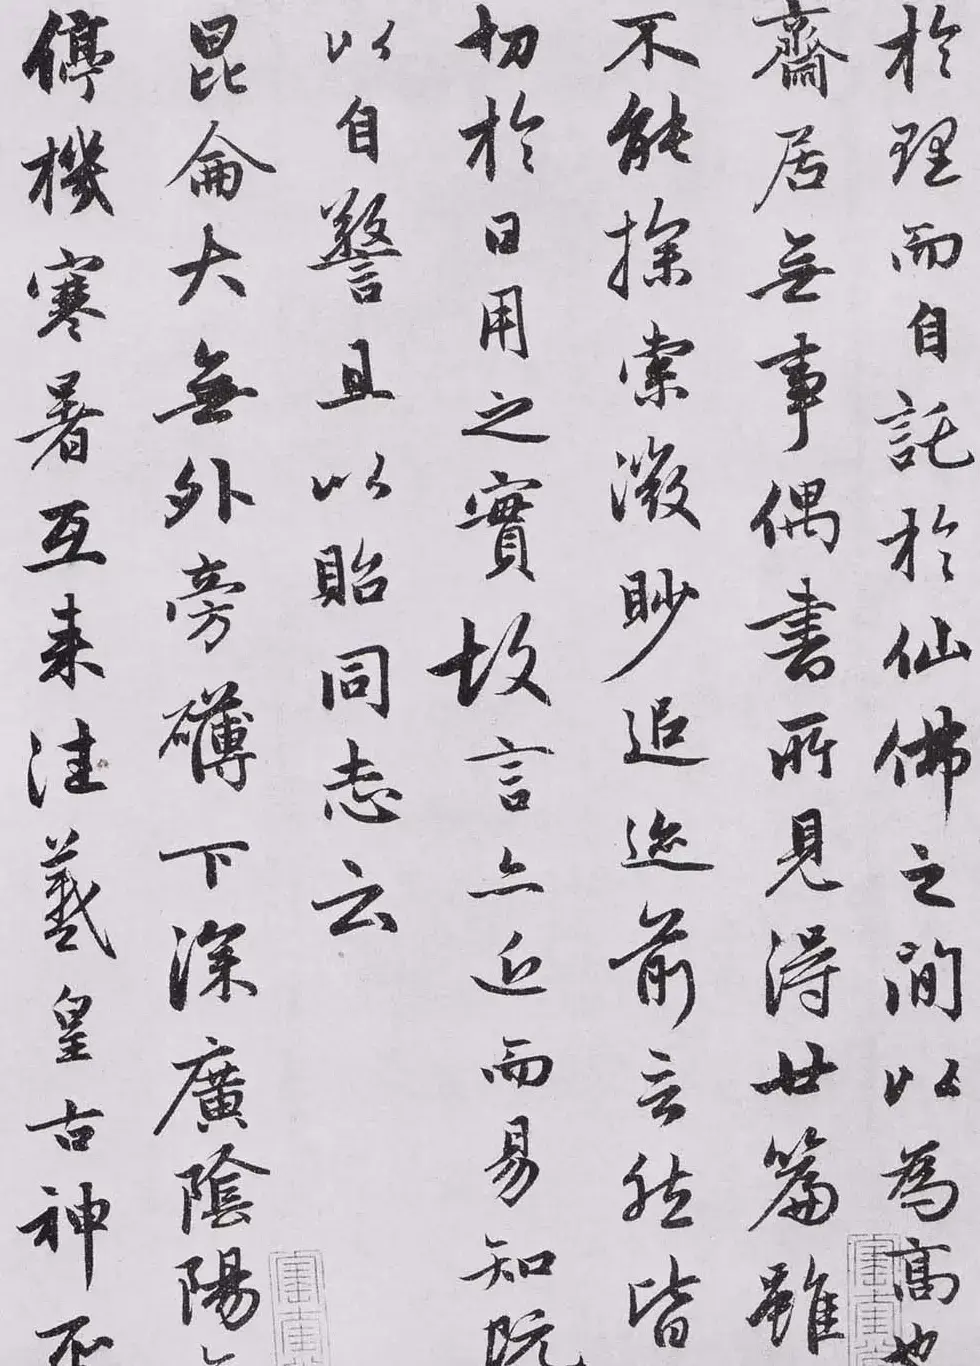 於理而自託於仙佛之間以為高也
齋居無事偶書所見得廿篇雖
不能探索微眇追迹前言然皆
切於日用之實故言亦近而易知既
以自警且以貽同志云
昆侖大無外旁礴下深廣陰陽
停機寒暑互來往羲皇古神不